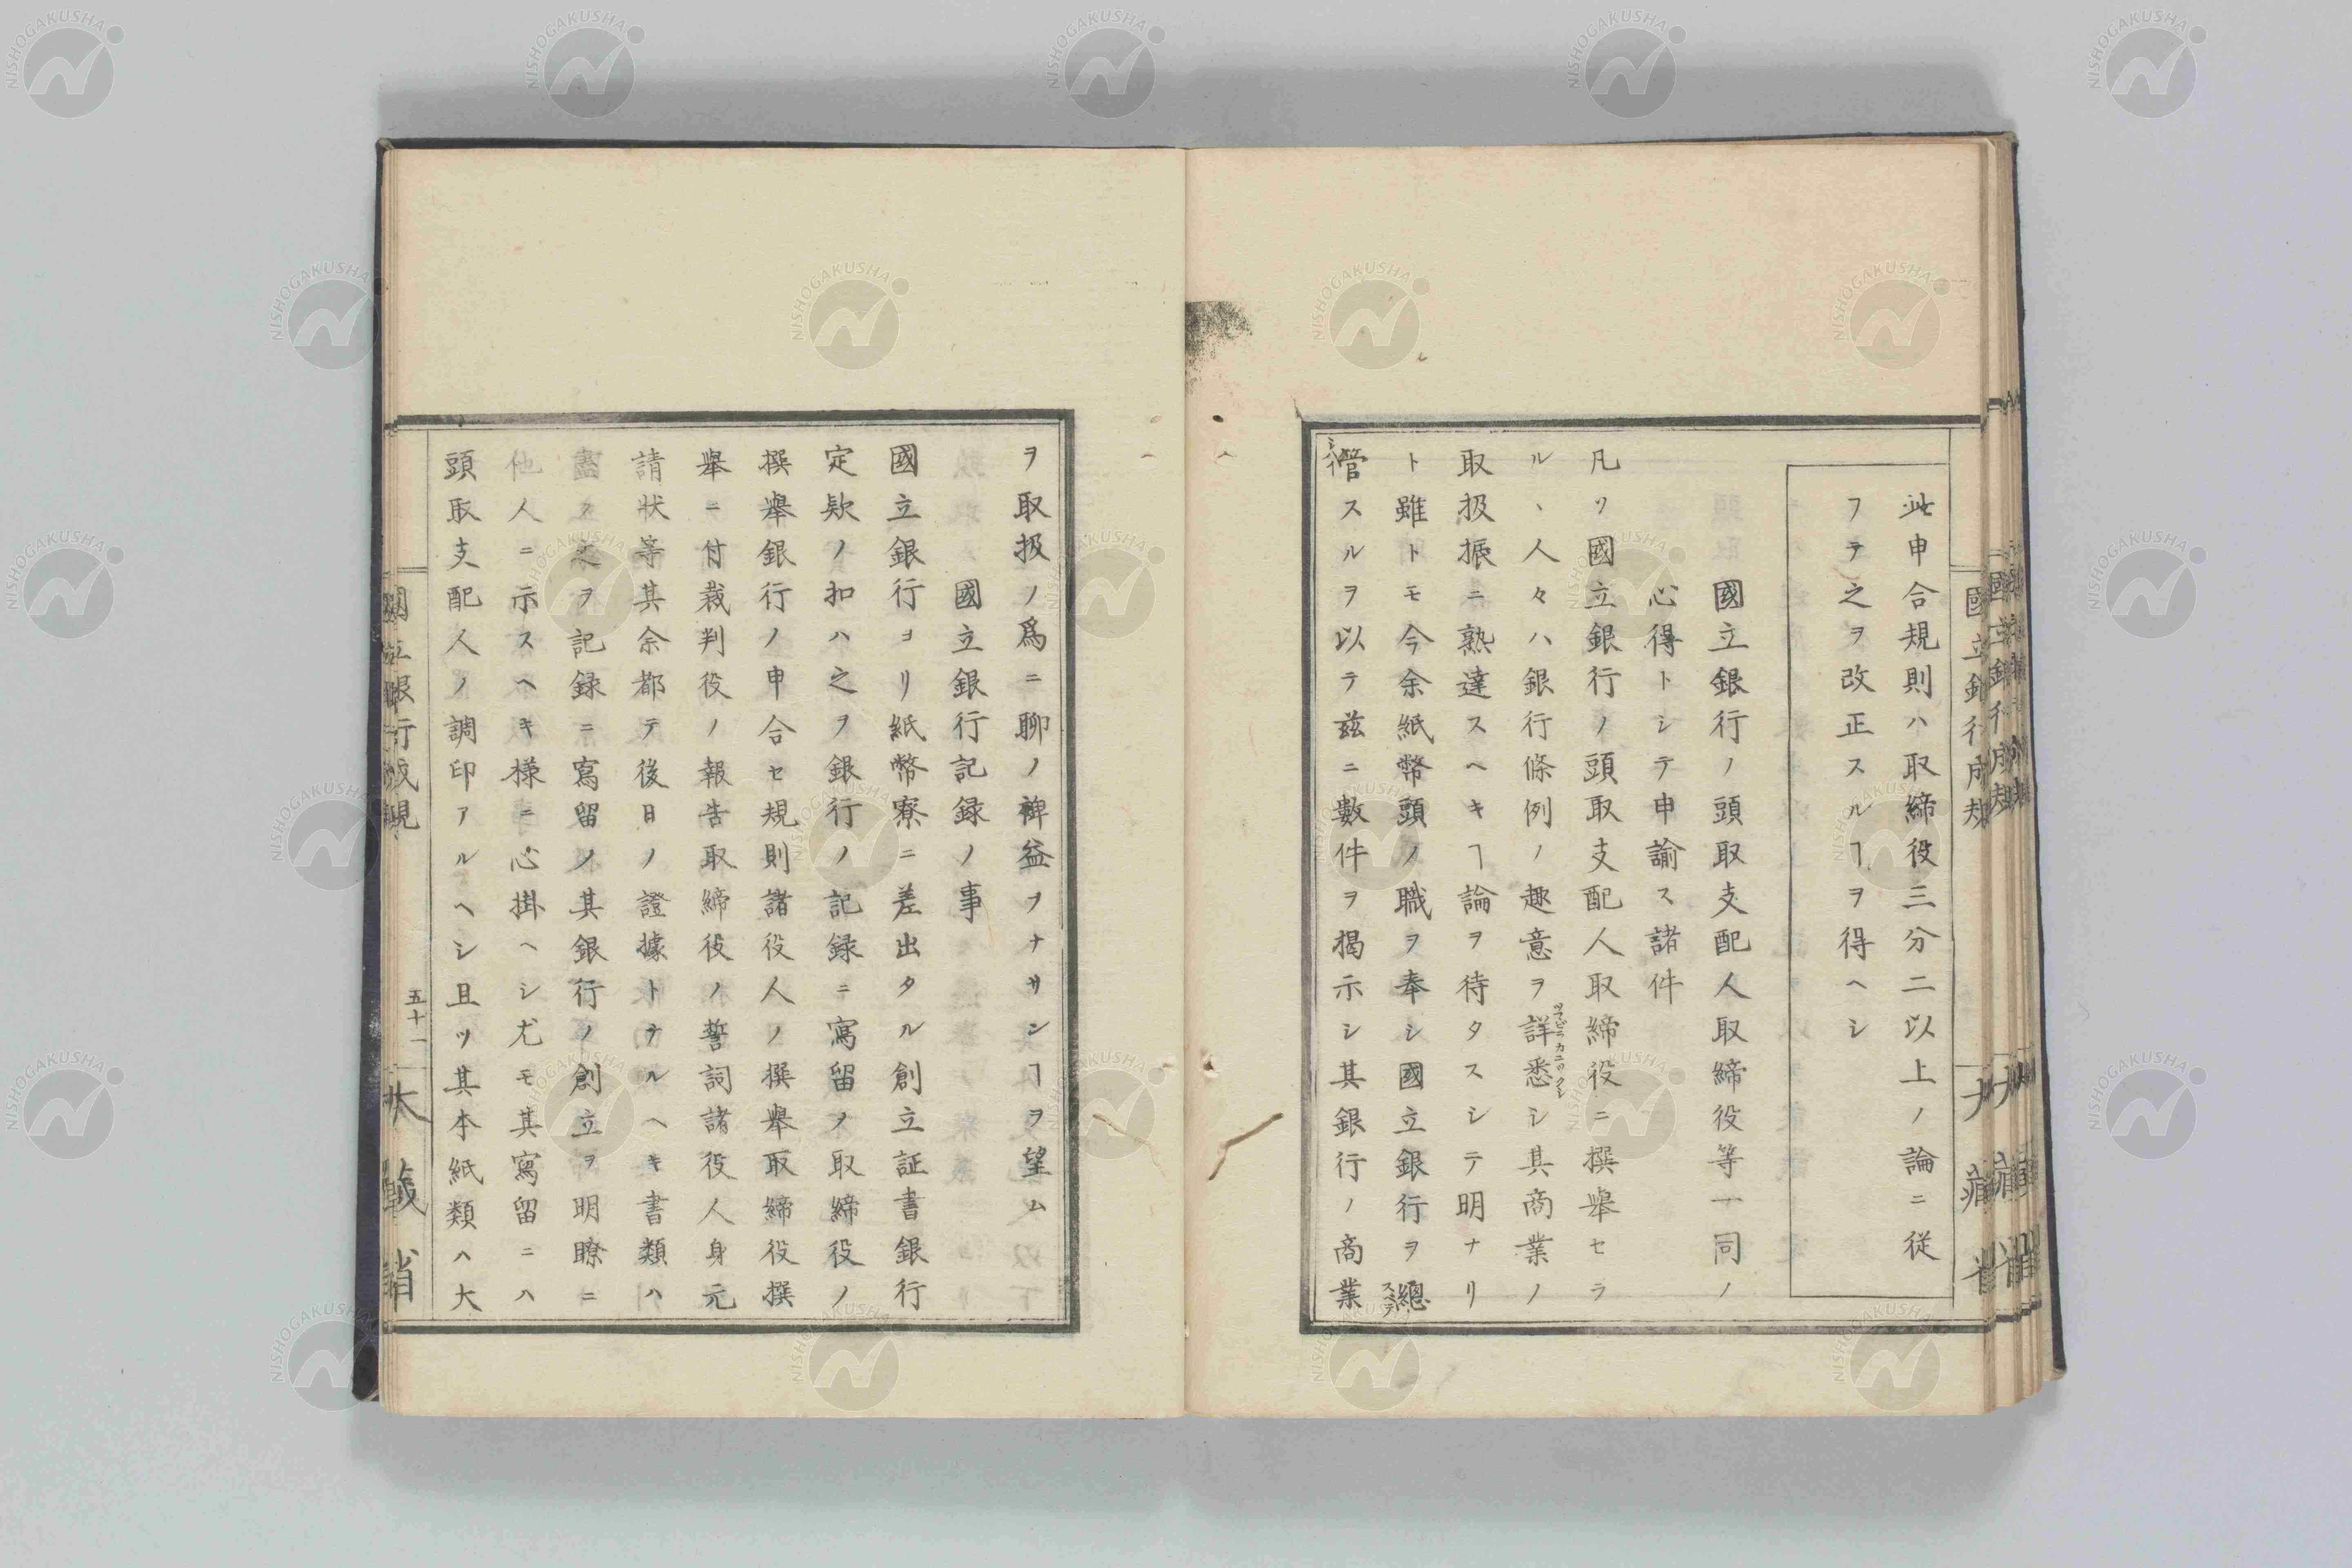 此申合規則ハ取締役三分二以上ノ論ニ従
フテ之ヲ改正スルヿヲ得ヘシ
國立銀行ノ頭取支配人取締役等一同ノ
心得トシテ申諭ス諸件
凡ソ國立銀行ノ頭取支配人取締役ニ撰舉セラ
ルヽ人々ハ銀行條例ノ趣意ヲ詳悉シ其商業ノ
取扱振ニ熟達スヘキヿ論ヲ待タスシテ明ナリ
ト雖トモ今余紙幣頭ノ職ヲ奉シ國立銀行ヲ總
管スルヲ以テ茲ニ數件ヲ揭示シ其銀行ノ商業
ヲ取扱ノ爲ニ聊ノ裨益ヲナサンヿヲ望ム
國立銀行記録ノ事
國立銀行ヨリ紙幣寮ニ差出タル創立証書銀行
定欵ノ扣ハ之ヲ銀行ノ記録ニ寫留メ取締役ノ
撰舉銀行ノ申合セ規則諸役人ノ撰舉取締役撰
舉ニ付裁判役ノ報告取締役ノ誓詞諸役人身元
請状等其余都テ後日ノ證據トナルヘキ書類ハ
盡ク之ヲ記録ニ寫留メ其銀行ノ創立ヲ明瞭ニ
他人ニ示スヘキ様ニ心掛ヘシ尤モ其寫留ニハ
頭取支配人ノ調印アルヘシ且ツ其本紙類ハ大
國立銀行成規
五十一
大藏省
NISHOGAKUSHA